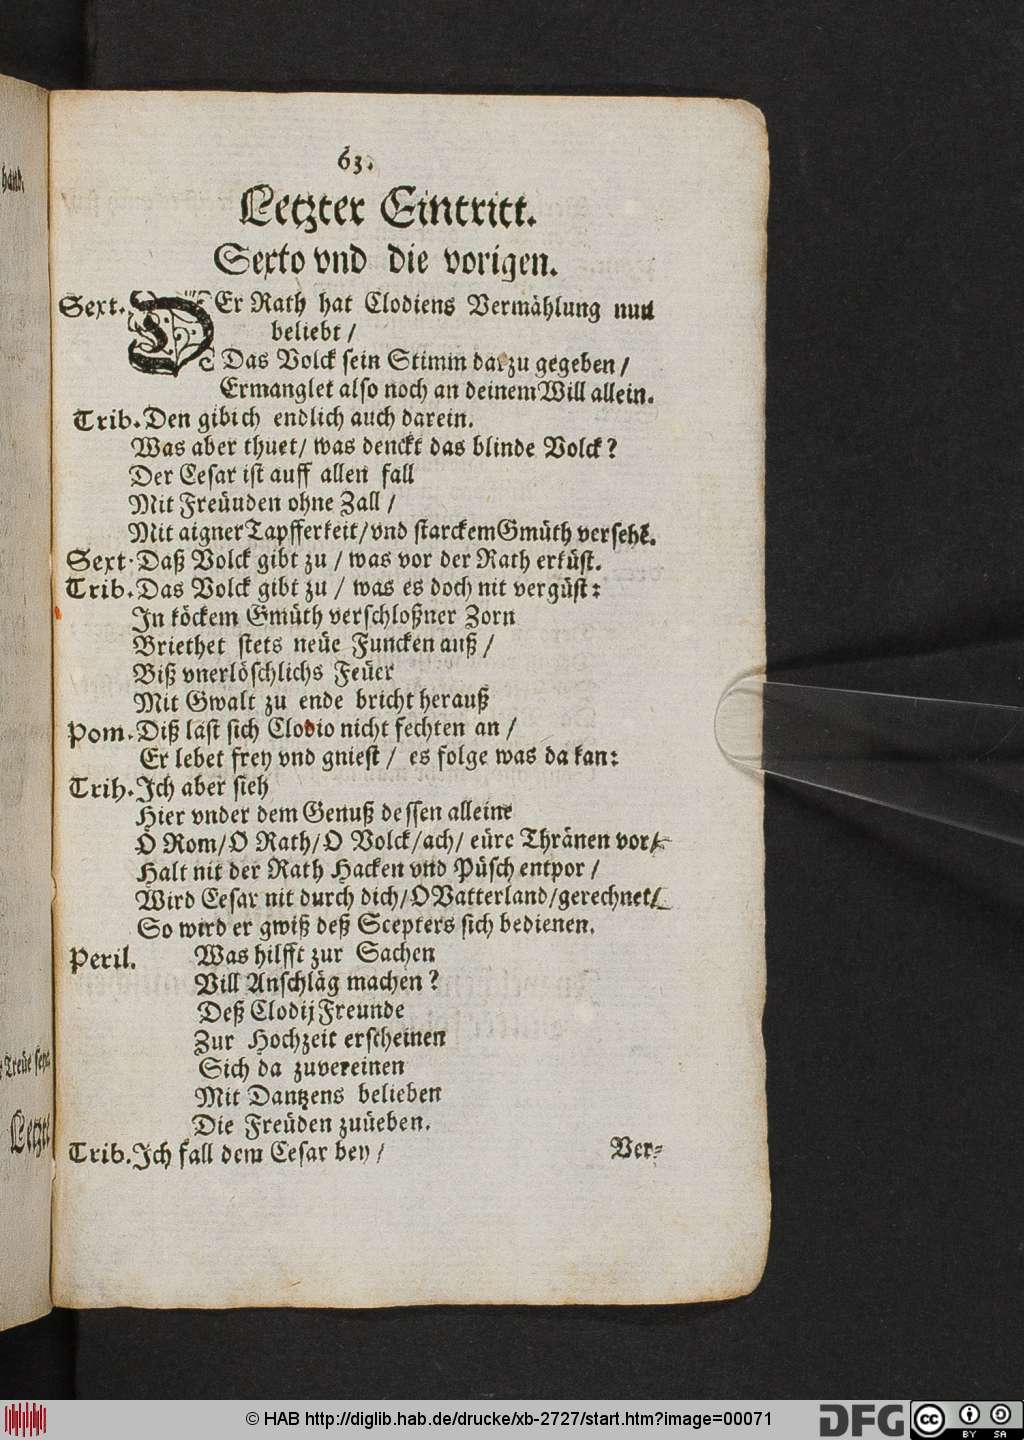 hand,
63.
Letzter Eintritt.
Sexto vnd die vorigen.
Sext. DEr Rath hat Clodiens Vermählung nun
beliebt /
Das Volck sein Stimm darzu gegeben /
Ermanglet also noch an deinem Will allein.
Trib. Den gib ich endlich auch darein.
Was aber thuet/ was denckt das blinde Volck?
Der Cesar ist auff allen fall
Mit Freüuden ohne Zall /
Mit aigner Tapfferkeit/vnd starckem Gmüth versehē.
Sext. Daß Volck gibt zu / was vor der Rath erküst.
Trib. Das Volck gibt zu / was es doch nit vergüst:
In köckem Gmüth verschloßner Zorn
Briethet stets neüe Funcken auß /
Biß vnerlöschlichs Feüer
Mit Gwalt zu ende bricht herauß
Pom. Diß läst sich Clodio nicht fechten an /
Er lebet frey vnd gniest / es folge was da kan:
Trih. Ich aber sieh
Hier vnder dem Genuß dessen alleine
O Rom/O Rath/O Volck/ach/ eüre Thränen vor/
Halt nit der Rath Hacken vnd Püsch entpor /
Wird Cesar nit durch dich/O Vatterland/gerechnet/
So wird er gwiß deß Scepters sich bedienen.
Peril. Was hilfft zur Sachen
Vill Anschläg machen?
Deß Clodij Freunde
Zur Hochzeit erscheinen
Sich da zuvereinen
Mit Dantzens belieben
Die Freüden zuüeben.
Trib. Ich fall dem Cesar bey /
Ver-
Treüe seye
Letzte
© HAB http://diglib.hab.de/drucke/xb-2727/start.htm?image=00071
DFG
cc BY SA